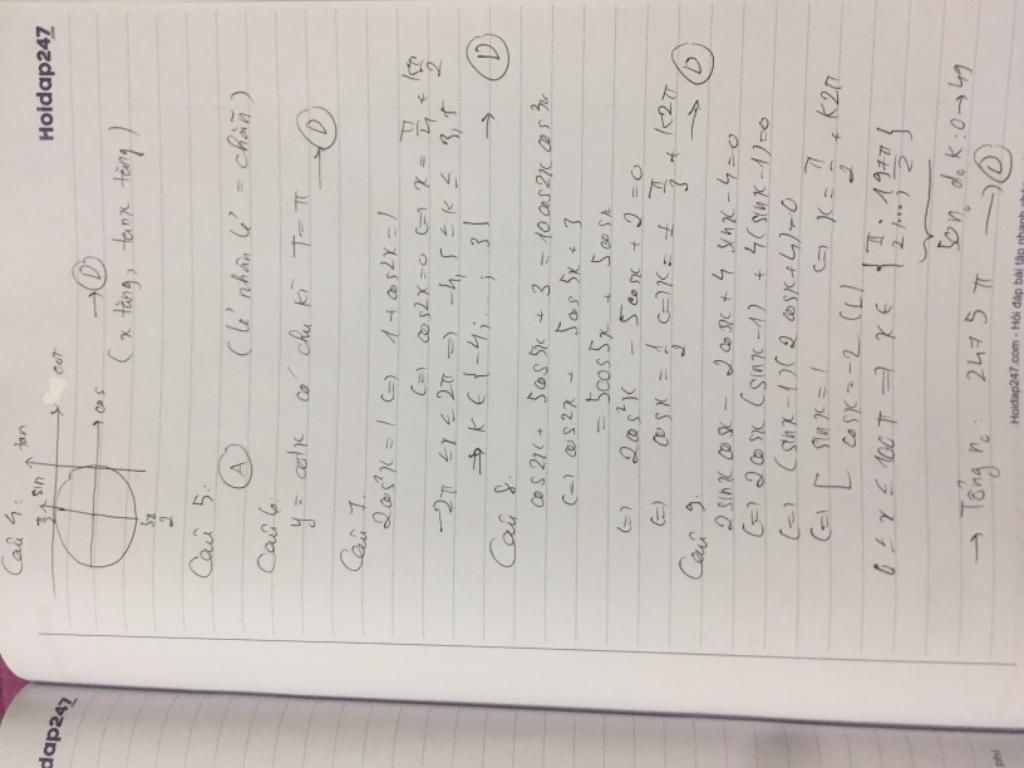 Hoidap247
Câu 4:
sin
tan
cot
cos
→ D
(x tăng, tanx tăng)
Câu 5:
A (lẻ nhân lẻ = chẵn)
Câu 6:
y = cotx có chu kì T = π
→ D
Câu 7
2cos²x = 1 (=) 1 + cos2x = 1
(=) cos2x = 0 (=) x = π/4 + kπ/2
-2π ≤ x ≤ 2π => -4,5 ≤ k ≤ 3,5
=> k ∈ {-4; ...; 3} → D
Câu 8.
cos2x + 5cos5x + 3 = 10cos2x cos3x
(=) cos2x + 5cos5x + 3
= 5cos5x + 5cosx
(=) 2cos²x - 5cosx + 2 = 0
(=) cosx = 1/2 (=) x = ± π/3 + k2π
→ D
Câu 9.
2sinx cosx - 2cosx + 4 sinx - 4 = 0
(=) 2cosx (sinx - 1) + 4(sinx - 1) = 0
(=) (sinx - 1)(2cosx + 4) = 0
(=) [ sinx = 1 (=) x = π/2 + k2π
cosx = -2 (L)
0 ≤ x ≤ 100π => x ∈ {π/2; ...; 197π/2}
50 n₀ do k: 0 → 49
→ Tổng n₀: 2475 π → D
Hoidap247.com - Hỏi đáp bài tập nhanh chóng
dap247
phí